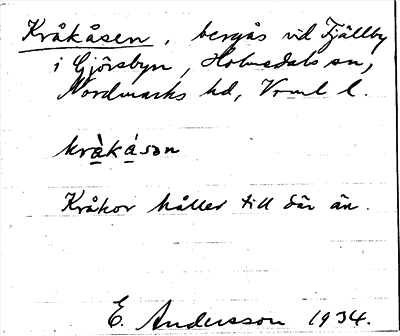 Kråkåsen, bergås vid Fjällby
i Gjörsbyn, Holmedals sn,
Nordmarks hd, Vrml l.
krå̀kǻsən
Kråkor håller till där än.
E. Andersson 1934.